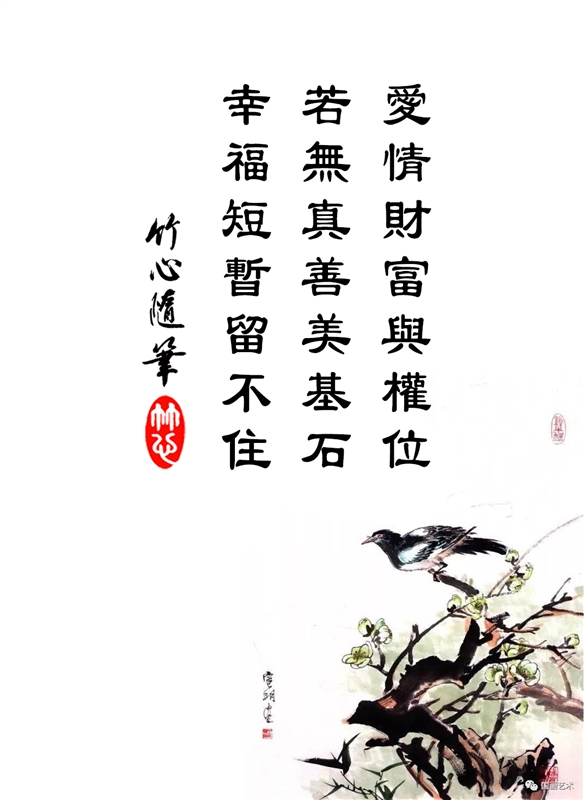 愛情財富與權位
若無真善美基石
幸福短暫留不住
竹心隨筆
竹心
国画艺术